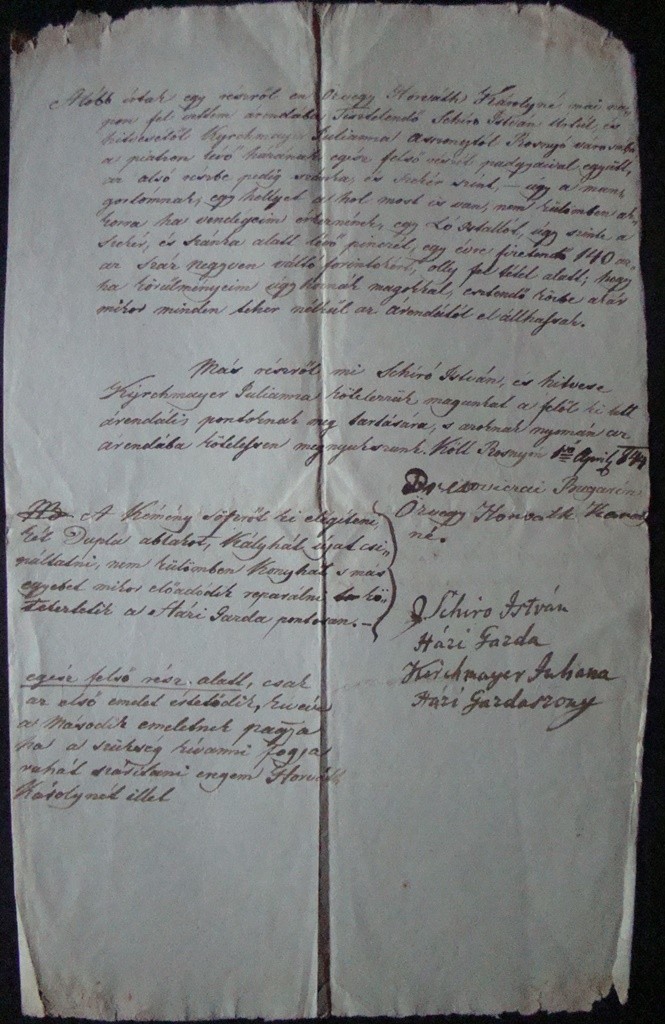 Alább írtak egy részről én Özvegy Horváth Károlyné mai na-
pon fel vettem árendába Tisztelendő Schiró István Urtúl, és
hitvesétől Kyrchmayer Julianna Asszonytól Rosnyó városába
a piatzon lévő házának egész felső részit padgyával együtt,
az alsó részbe pedig szánka, és szekér színt, – úgy a man-
gorlómnak, egy hellyet a hol most is van, nem külömben ak-
korra ha vendégeim érkeznének, egy Ló Istállót, úgy szinte a
szekér, és szánka alatt lévő pinczét, egy évre fizetendő 140 az-
az száz negyven váltó forintokért, olly fel tétel alatt; hogy
ha körülményeim úgy hoznák magokkal, esztendő közbe akár
mikor minden teher nélkül az árendától el állhassak.
Más részről mi Schiró István, és hitvese
Kyrchmayer Julianna kötelezzük magunkat a felöl ki tett
árendális pontoknak meg tartására, s azoknak nyomán az
árendába kötelessen megnyukszunk. Költ Rosnyon 1ső April 844
Bugarin
Özvegy Horváth Károly
né.
A Kémény Söprőt ki elégíteni
két Dupla ablakot, Kályhát újat csi-
náltatni, nem külömben Konyhát s más
egyebet mikor előadódik reparálni kö-
teleztetik a Házi Gazda pontosan. –
Schiro István
Házi Gazda
Kerchmayer Juliana
Házi Gazdaszony
egész felső rész alatt, csak
az első emelet értetődik,
a Második emeletnek pagja
ha a szükség kívánni fogja
ruhát szárítani engem Horváth
Károlynét illet